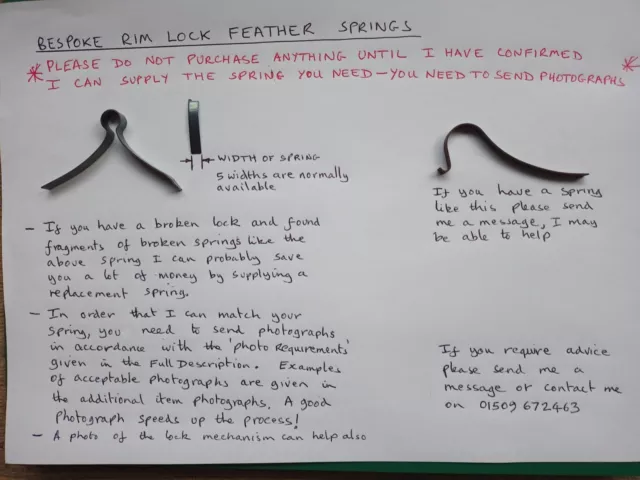 BESPOKE RIM LOCK FEATHER SPRINGS
* PLEASE DO NOT PURCHASE ANYTHING UNTIL I HAVE CONFIRMED *
I CAN SUPPLY THE SPRING YOU NEED - YOU NEED TO SEND PHOTOGRAPHS
WIDTH OF SPRING
5 widths are normally
available
If you have a spring
like this please send
me a message, I may
be able to help
- If you have a broken lock and found
fragments of broken springs like the
above spring I can probably save
you a lot of money by supplying a
replacement spring.
- In order that I can match your
spring, you need to send photographs
in accordance with the 'photo requirements'
given in the Full Description. Examples
of acceptable photographs are given in
the additional item photographs. A good
photograph speeds up the process!
- A photo of the lock mechanism can help also
If you require advice
please send me a
message or contact me
on 01509 672463